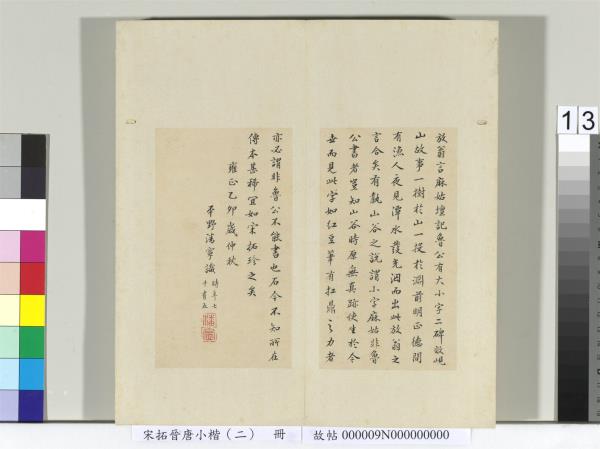 放翁言麻姑壇記魯公有大小字二碑效峴
山故事一樹於山一投於淵前明正德間
有漁人夜見潭水發光泅而出此放翁之
言合矣有執山谷之說謂小字麻姑非魯
公書者豈知山谷時原無真跡使生於今
世而見此字如紅豆筆有扛鼎之力者
亦必謂非魯公不能書也石今不知所在
傳本甚稀宜如宋拓珍之矣
雍正乙卯歲仲秋
平野
識
時年七
十有五
宋拓晉唐小楷（二） 冊 故帖000009N000000000
13